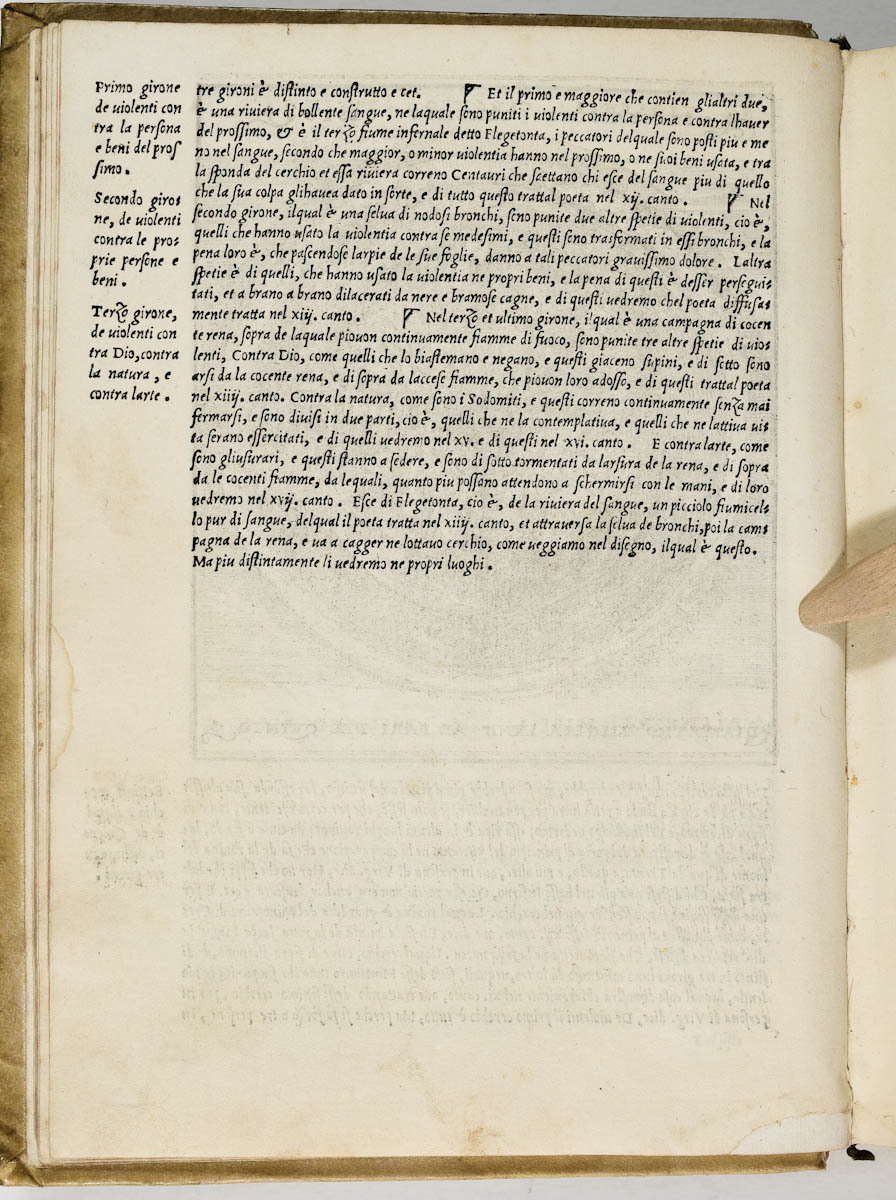 Primo girone
de violenti con
tra la persona
e beni del pros
simo.
Secondo giros
ne, de violenti
contra le pros
prie persone e
beni.
Terzo girone,
de violenti con
tra Dio, contra
la natura, e
contra larte.
tre gironi è distinto e construtto e cet. Et il primo e maggiore che contien glialtri due,
è una riviera di bollente sangue, ne laquale sono puniti i violenti contra la persona e contra lhaver
del prossimo, & è il terzo fiume infernale detto Flegetonta, i peccatori delquale sono posti piu e me
no nel sangue, secondo che maggior, o minor violentia hanno nel prossimo, o ne suoi beni usata, e tra
la sponda del cerchio et essa riviera correno Centauri che saettano chi esce del sangue piu di quello
che la sua colpa glihavea dato in sorte, e di tutto questo trattal poeta nel xij. canto. Nel
secondo girone, ilqual è una selva di nodosi bronchi, seno punite due altre spetie di violenti, cio è,
quelli che hanno usato la violentia contra se medesimi, e questi seno trasformati in essi bronchi, e la
pena loro è, che pascendose larpie de le sue foglie, danno a tali peccatori gravissimo dolore. Laltra
spetie è di quelli, che hanno usato la violentia ne propri beni, e la pena di questi è desser perseguis
tati, et a brano a brano dilacerati da nere e bramose cagne, e di questi vedremo chel poeta diffusas
mente tratta nel xiij. canto. Nel terzo et ultimo girone, ilqual è una campagna di cocen
te rena, sopra de laquale piovon continuamente fiamme di fuoco, sono punite tre altre spetie di vios
lenti, Contra Dio, come quelli che lo biastemano e negano, e questi giaceno supini, e di sotto sono
arsi da la cocente rena, e di sopra da laccese fiamme, che piovon loro adosso, e di questi trattal poeta
nel xiiij. canto. Contra la natura, come sono i Sodomiti, e questi correno continuamente senza mai
fermarsi, e sono divisi in due parti, cio è, quelli che ne la contemplativa, e quelli che ne lattiva vis
ta serano essercitati, e di quelli vedremo nel xv. e di questi nel xvi. canto. E contra larte, come
sono gliusurari, e questi stanno a sedere, e sono di sotto tormentati da larsura de la rena, e di sopra
da le cocenti fiamme, da lequali, quanto piu possano attendono a schermirsi con le mani, e di loro
vedremo nel xvij. canto. Esce di Flegetonta, cio è, de la riviera del sangue, un picciolo fiumicels
lo pur di sangue, delqual il poeta tratta nel xiiij. canto, et attraversa la selva de bronchi, poi la cams
pagna de la rena, e va a cagger ne lottavo cerchio, come veggiamo nel disegno, ilqual è questo.
Ma piu distintamente li vedremo ne propri luoghi.